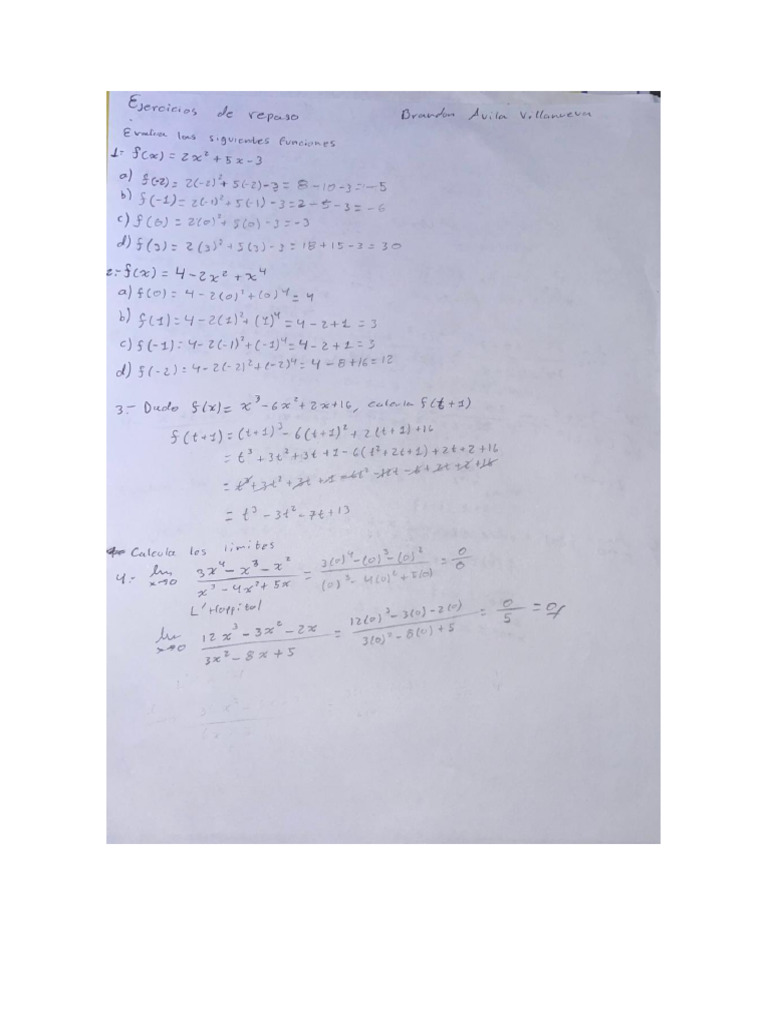 Ejercicios de repaso Brandon Avila Villanueva
Evalua las siguientes funciones
1.- f(x) = 2x² + 5x - 3
a) f(-2) = 2(-2)² + 5(-2) - 3 = 8 - 10 - 3 = -5
b) f(-1) = 2(-1)² + 5(-1) - 3 = 2 - 5 - 3 = -6
c) f(0) = 2(0)² + 5(0) - 3 = -3
d) f(3) = 2(3)² + 5(3) - 3 = 18 + 15 - 3 = 30
2.- f(x) = 4 - 2x² + x⁴
a) f(0) = 4 - 2(0)² + (0)⁴ = 4
b) f(1) = 4 - 2(1)² + (1)⁴ = 4 - 2 + 1 = 3
c) f(-1) = 4 - 2(-1)² + (-1)⁴ = 4 - 2 + 1 = 3
d) f(-2) = 4 - 2(-2)² + (-2)⁴ = 4 - 8 + 16 = 12
3.- Dado f(x) = x³ - 6x² + 2x + 16, calcula f(t+1)
f(t+1) = (t+1)³ - 6(t+1)² + 2(t+1) + 16
= t³ + 3t² + 3t + 1 - 6(t² + 2t + 1) + 2t + 2 + 16
= t³ + 3t² + 3t + 1 - 6t² - 12t - 6 + 2t + 2 + 16
= t³ - 3t² - 7t + 13
Calcula los limites
4.- lim x→0 (3x⁴ - x³ - x²)/(x³ - 4x² + 5x) = (3(0)⁴ - (0)³ - (0)²)/((0)³ - 4(0)² + 5(0)) = 0/0
L'Hopital
lim x→0 (12x³ - 3x² - 2x)/(3x² - 8x + 5) = (12(0)³ - 3(0) - 2(0))/(3(0)² - 8(0) + 5) = 0/5 = 0